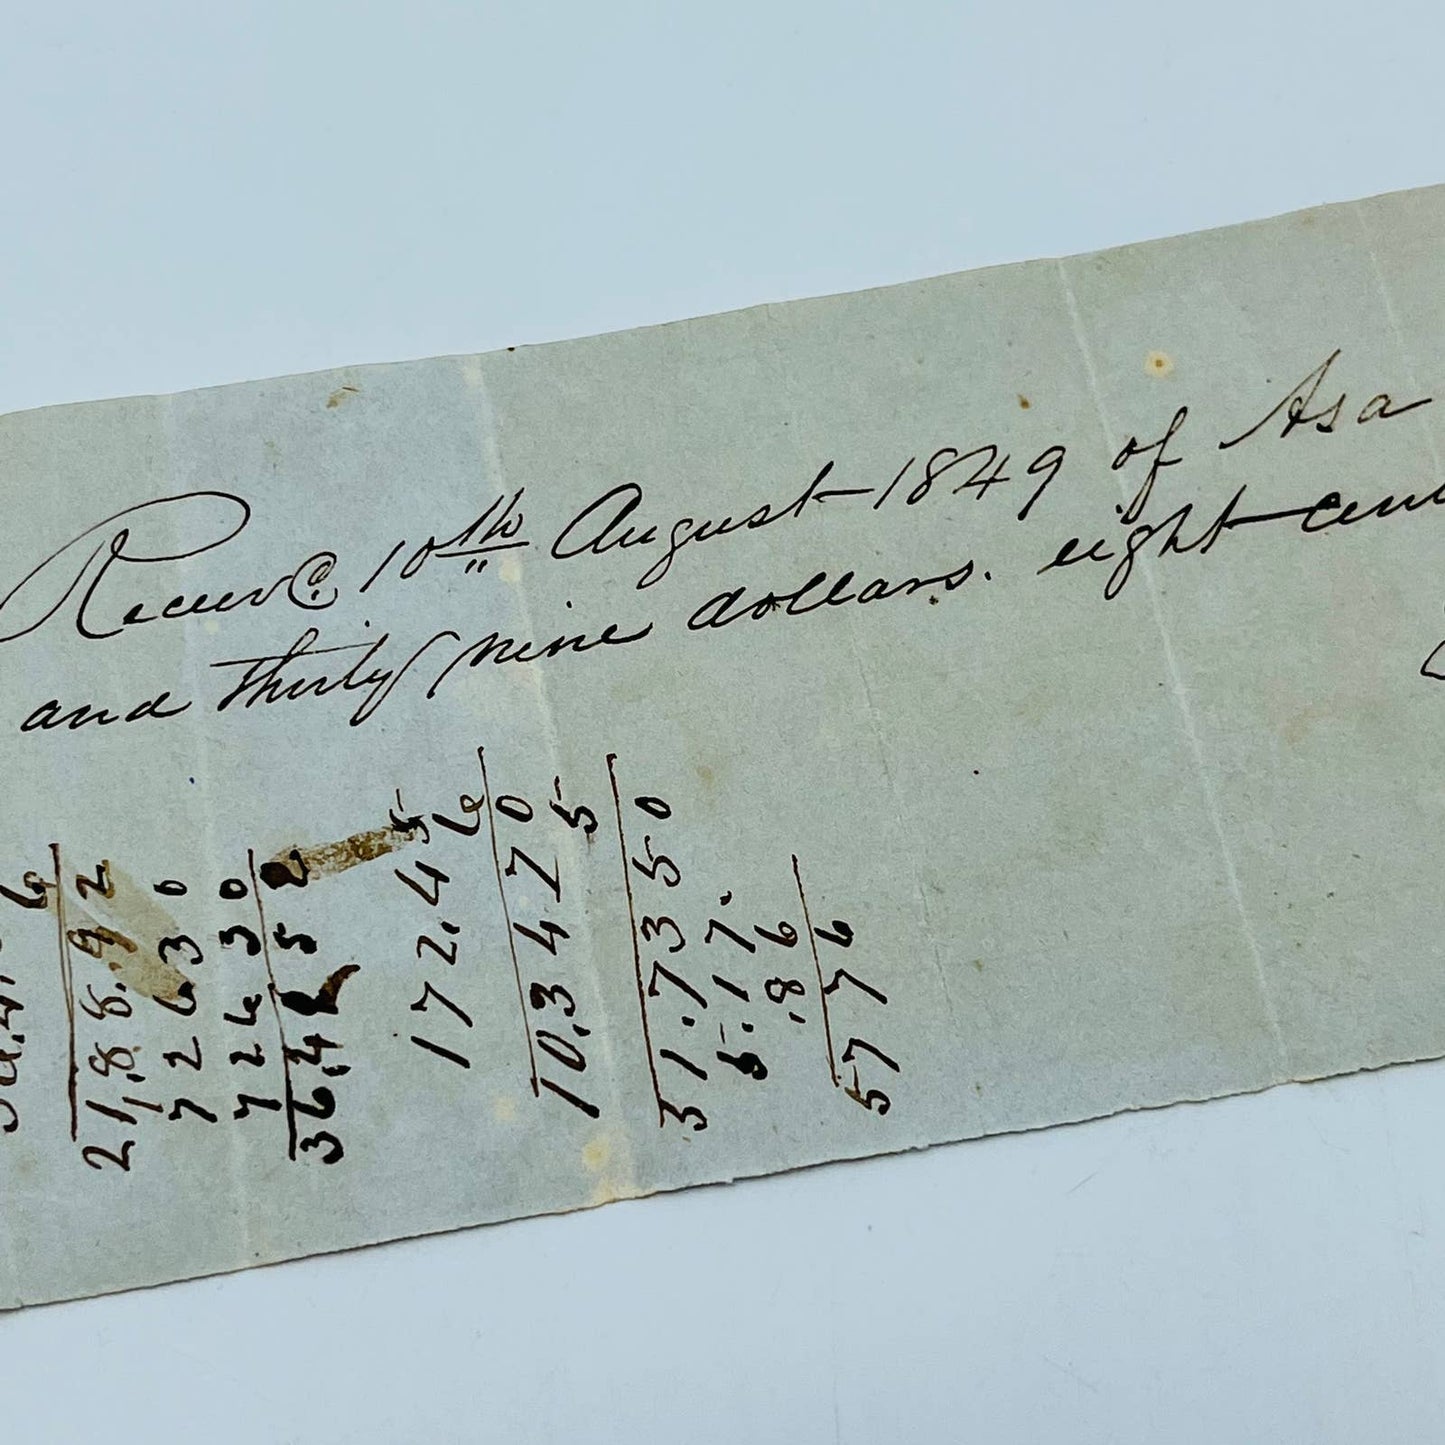 Receivd. 10th August 1849 of Asa
and thirty nine dollars. eight cen
6
21,8.8.92
72630
72630
36.4 52
172.45
6
10,3470
5
31.7350
5.17.
.86
5776